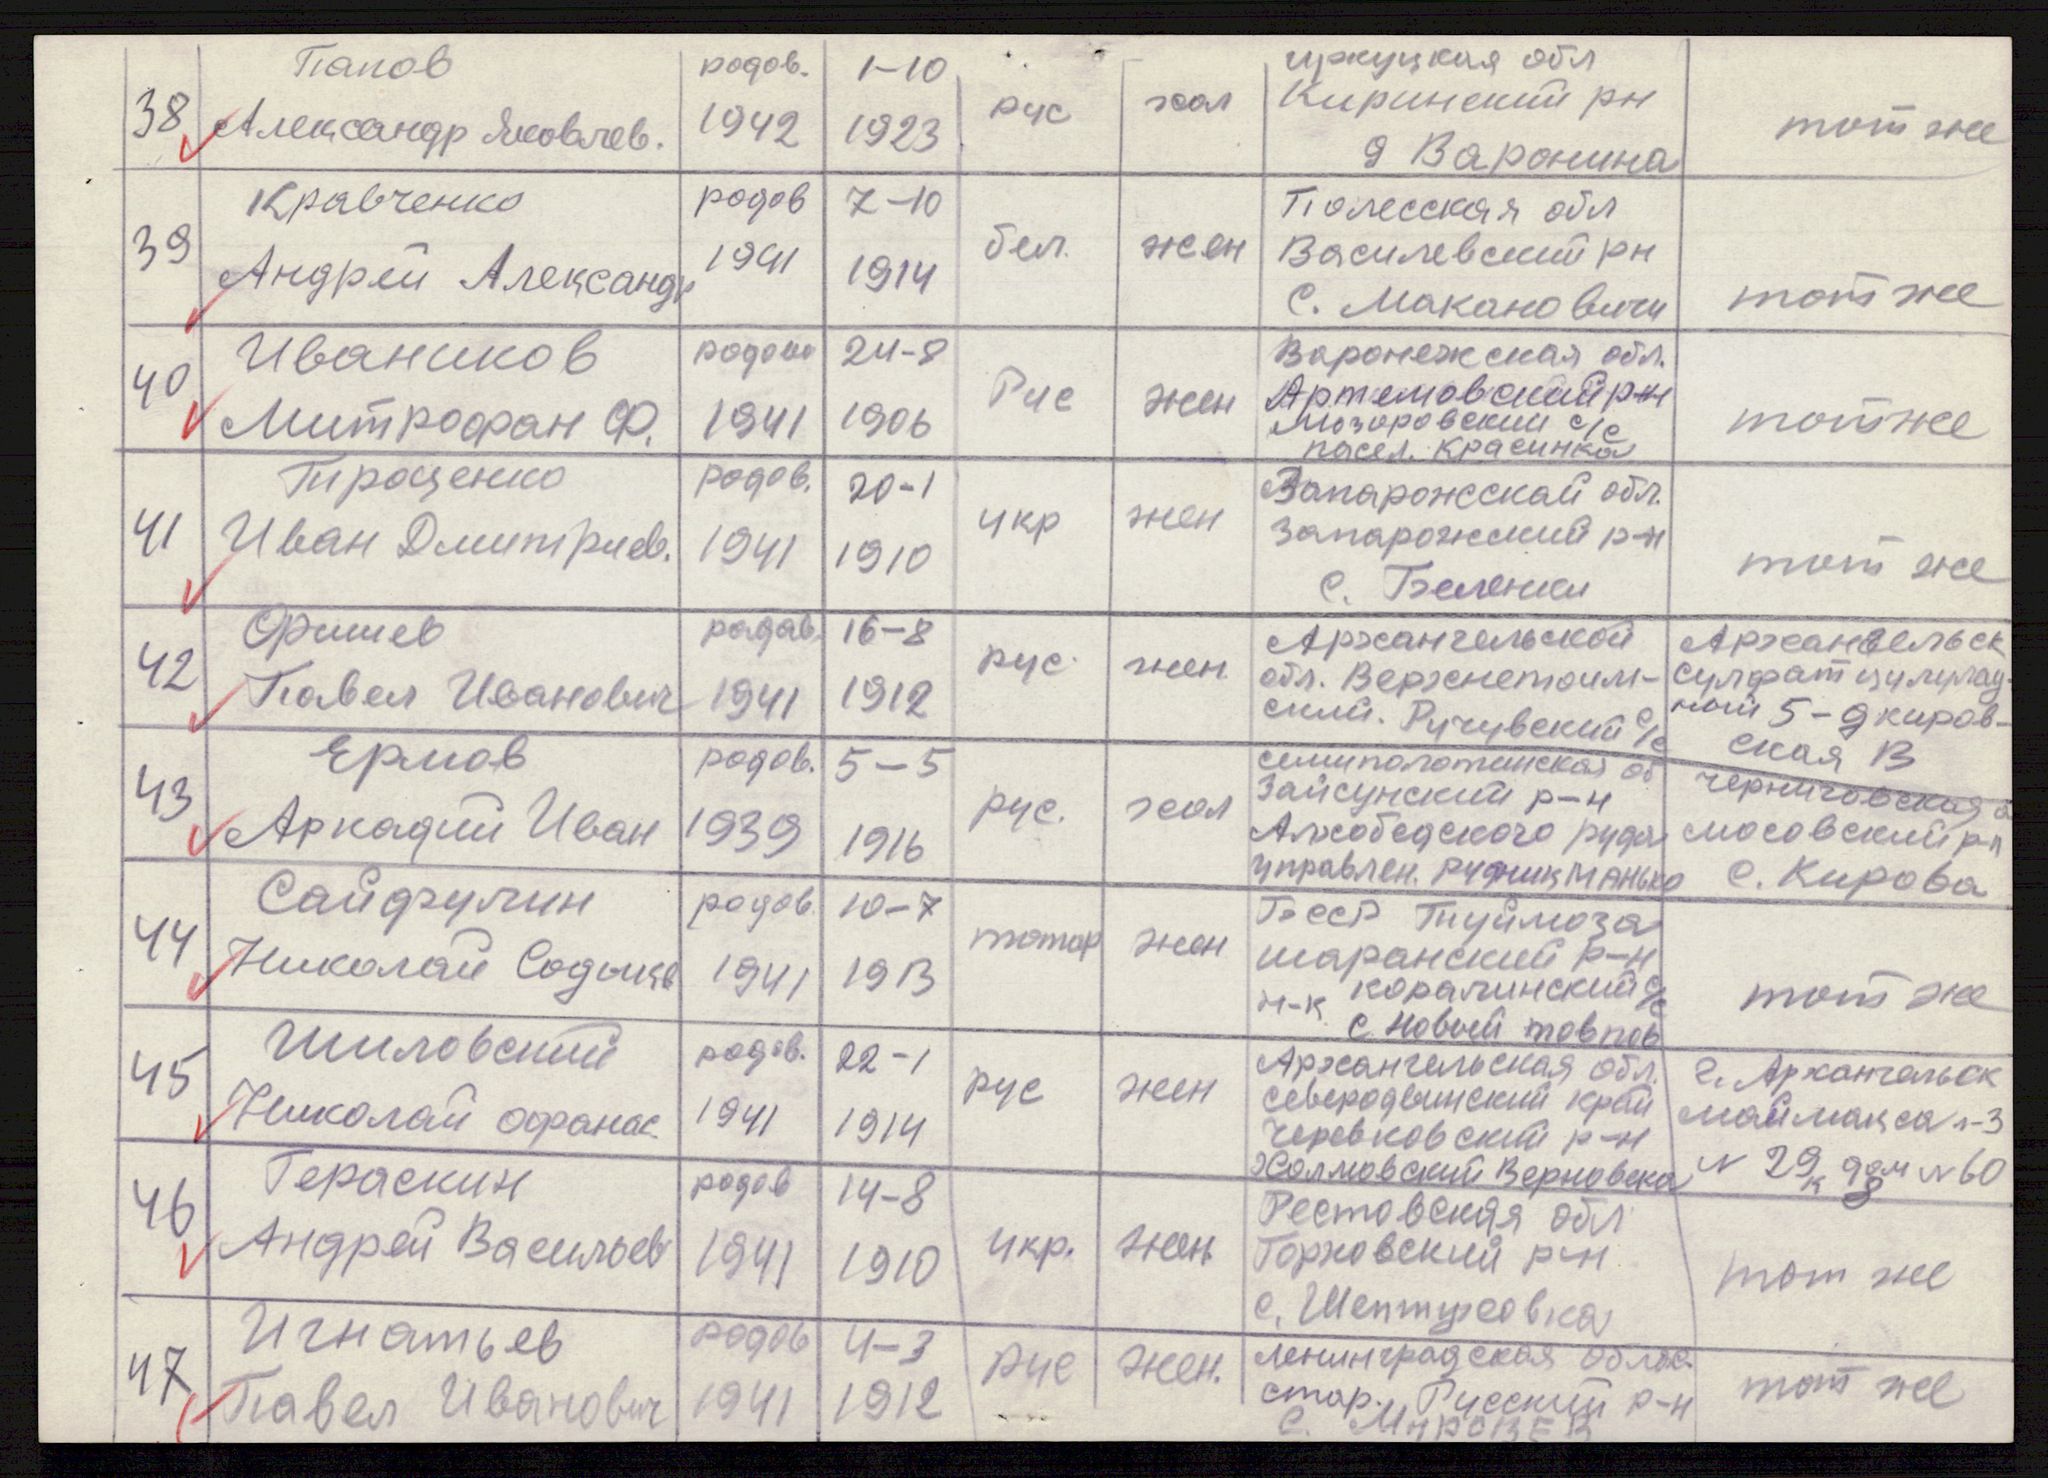 38
Папов
Александр Яковлев.
родов.
1942
1-10
1923
рус
хол
иркуцкая обл
Киринский рн
д Варонина
тот же
39
Кравченко
Андрей Александр
родов
1941
7-10
1914
бел.
жен
Полесская обл
Василевский рн
С. Макановичи
тот же
40
Иваников
Митрофан Ф.
родово
1941
24-8
1906
Рус
жен
Варонежская обл.
Артемовский р-н
Мозоровский с/с
посел. Красинка
тот же
41
Проценко
Иван Дмитриев.
родов.
1941
20-1
1910
укр
жен
Запарожскай обл.
Запарожский р-н
с. Беленки
тот же
42
Оришев
Павел Иванович
радав.
1941
16-8
1912
рус
жен.
Архангельской
обл. Верхнетоим-
ский. Ручувский с/с
Архангельск
сулфат цулулад-
ный 5-д киров-
ская В
43
Ермов
Аркадий Иван
родов.
1939
5-5
1916
рус.
хол
семиполотинская об
Зайсунский р-н
Ахобедского рудо
управлен. рудник Манько
черниговская о
мосовский р-н
С. Кирова
44
Сайфулин
Николай
родов.
1941
10-7
1913
татар
жен
БССР Туймоза
шаранский р-н
н-к коралинский с/с
с. новый товпов
тот же
45
Шиловский
Николай офанас.
родов.
1941
22-1
1914
рус
жен
Архангельская обл.
северодвинский край
Черевковский р-н
Холмовский Верновска
г. Архангельск
маймакса л-3
N 29 к дом N 60
8
46
Гераскин
Андрей Васильев
родов
1941
14-8
1910
укр.
жен
Рестовская обл
Горховский р-н
с. Шептуховка
тот же
47
Игнатьев
Павел Иванович
родов
1941
4-3
1912
рус
жен.
Ленинградская облас.
стар. Русский р-н
С.
тот же